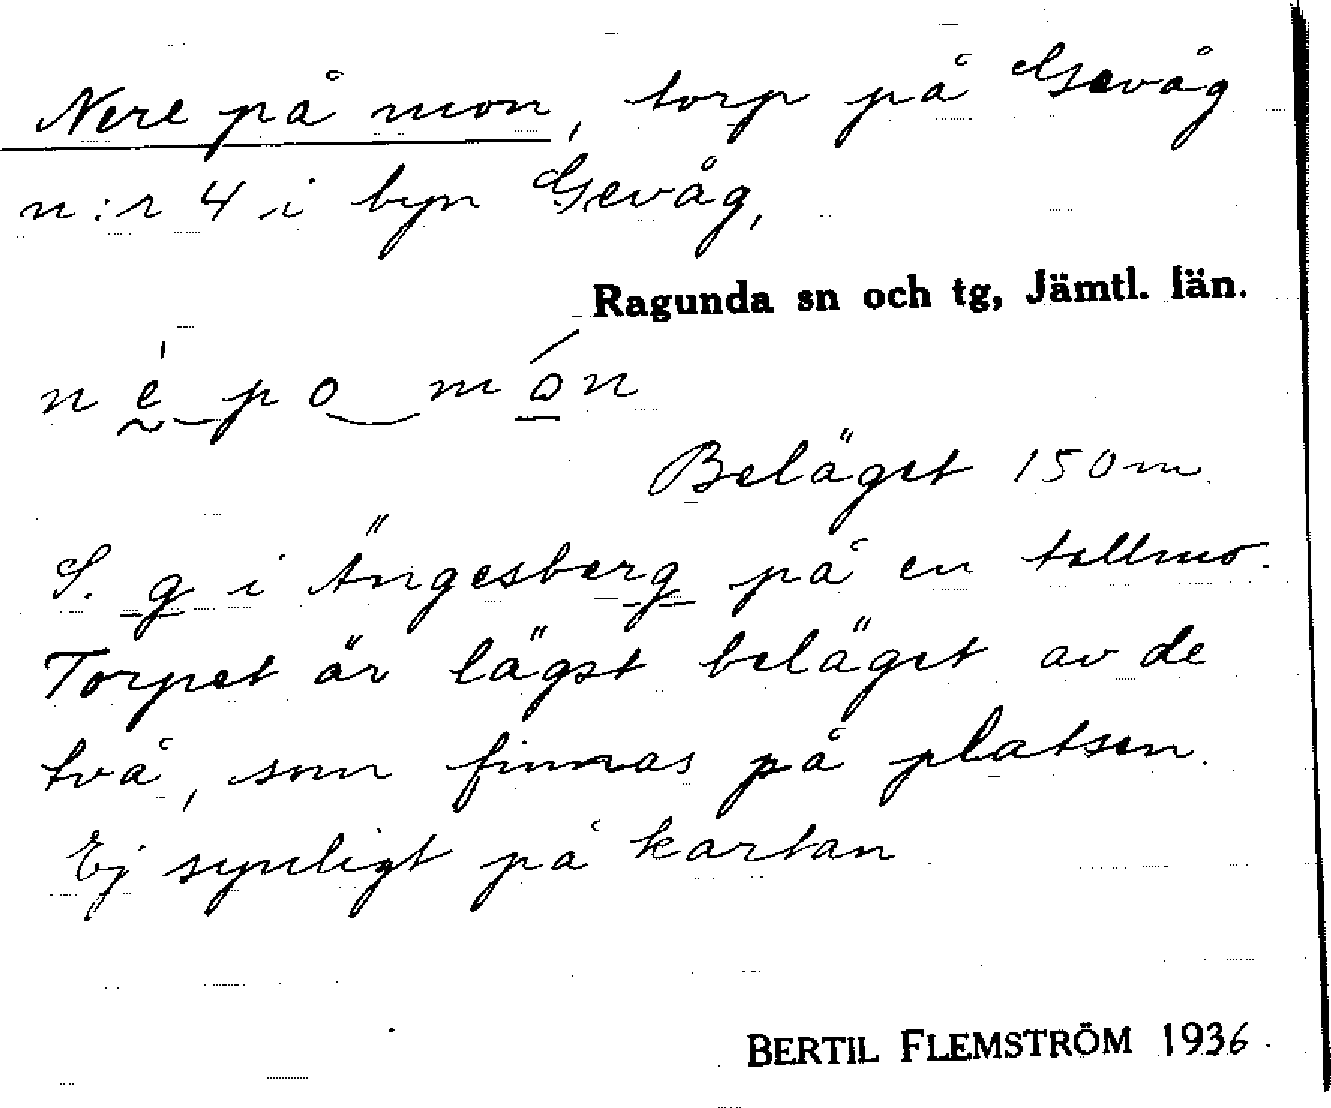 Nere på mon, torp på Gevåg
n:r 4 i byn Gevåg,
Ragunda sn och tg, Jämtl. län.
né po món
Beläget 150 m
S. g i Ängesberg på en tallmo.
Torpet är lägst beläget av de
två, som finnas på platsen.
Ej synligt på kartan
BERTIL FLEMSTRÖM 1936.